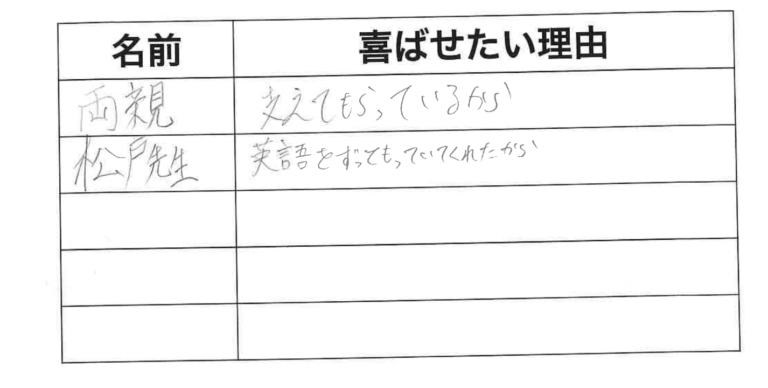 名前 喜ばせたい理由
両親 支えてもらっているから
松戸先生 英語をずっともっていてくれたから